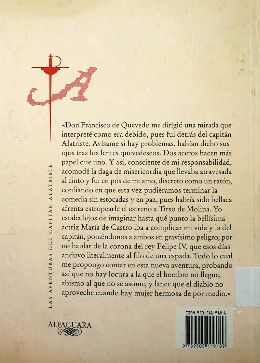 A
«Don Francisco de Quevedo me dirigió una mirada que
interpreté como era debido, pues fui detrás del capitán
Alatriste. Avísame si hay problemas, habían dicho sus
ojos tras los lentes quevedescos. Dos aceros hacen más
papel que uno. Y así, consciente de mi responsabilidad,
acomodé la daga de misericordia que llevaba atravesada
al cinto y fui en pos de mi amo, discreto como un ratón,
confiando en que esta vez pudiéramos terminar la
comedia sin estocadas y en paz, pues habría sido bellaca
afrenta estropearle el estreno a Tirso de Molina. Yo
estaba lejos de imaginar hasta qué punto la bellísima
actriz María de Castro iba a complicar mi vida y la del
capitán, poniéndonos a ambos en gravísimo peligro; por
no hablar de la corona del rey Felipe IV, que esos días
anduvo literalmente al filo de una espada. Todo lo cual
me propongo contar en esta nueva aventura, probando
así que no hay locura a la que el hombre no llegue,
abismo al que no se asome, y lance que el diablo no
aproveche cuando hay mujer hermosa de por medio.»
LAS AVENTURAS DEL CAPITÁN ALATRISTE
ALFAGUARA